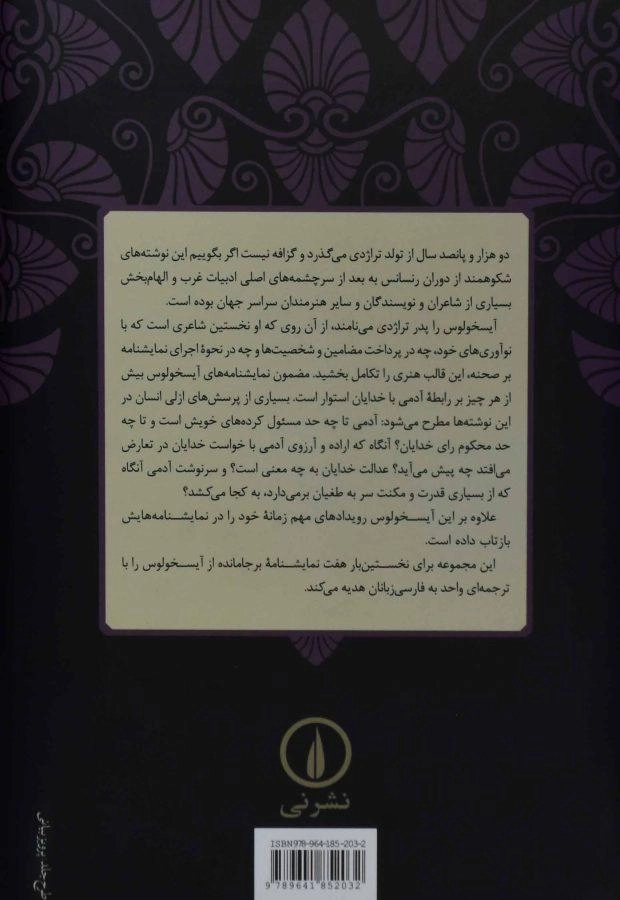 دو هزار و پانصد سال از تولد تراژدی می‌گذرد و گزافه نیست اگر بگوییم این نوشته‌های
شکوهمند از دوران رنسانس به بعد از سرچشمه‌های اصلی ادبیات غرب و الهام‌بخش
بسیاری از شاعران و نویسندگان و سایر هنرمندان سراسر جهان بوده است.
آیسخولوس را پدر تراژدی می‌نامند، از آن روی که او نخستین شاعری است که با
نوآوری‌های خود، چه در پرداخت مضامین و شخصیت‌ها و چه در نحوهٔ اجرای نمایشنامه
بر صحنه، این قالب هنری را تکامل بخشید. مضمون نمایشنامه‌های آیسخولوس بیش
از هر چیز بر رابطهٔ آدمی با خدایان استوار است. بسیاری از پرسش‌های ازلی انسان در
این نوشته‌ها مطرح می‌شود: آدمی تا چه حد مسئول کرده‌های خویش است و تا چه
حد محکوم رای خدایان؟ آنگاه که اراده و آرزوی آدمی با خواست خدایان در تعارض
می‌افتد چه پیش می‌آید؟ عدالت خدایان به چه معنی است؟ و سرنوشت آدمی آنگاه
که از بسیاری قدرت و مکنت سر به طغیان برمی‌دارد، به کجا می‌کشد؟
علاوه بر این آیسخولوس رویدادهای مهم زمانهٔ خود را در نمایشنامه‌هایش
بازتاب داده است.
این مجموعه برای نخستین‌بار هفت نمایشنامهٔ برجامانده از آیسخولوس را با
ترجمه‌ای واحد به فارسی‌زبانان هدیه می‌کند.
نشرنی
ISBN 978-964-185-203-2
9 789641 852032
طرح جلد: پرویز بیانی